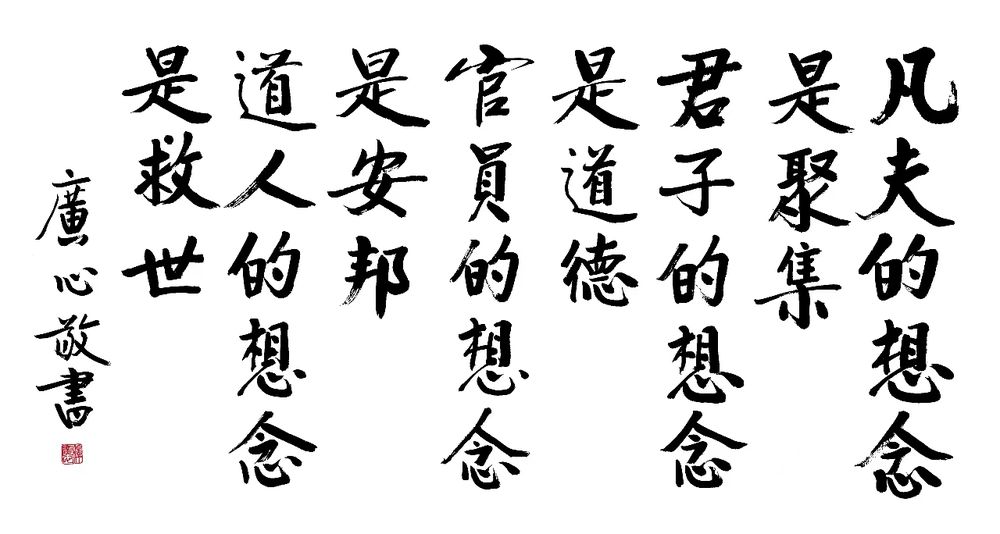 凡夫的想念
是聚集
君子的想念
是道德
官員的想念
是安邦
道人的想念
是救世
廣心敬書